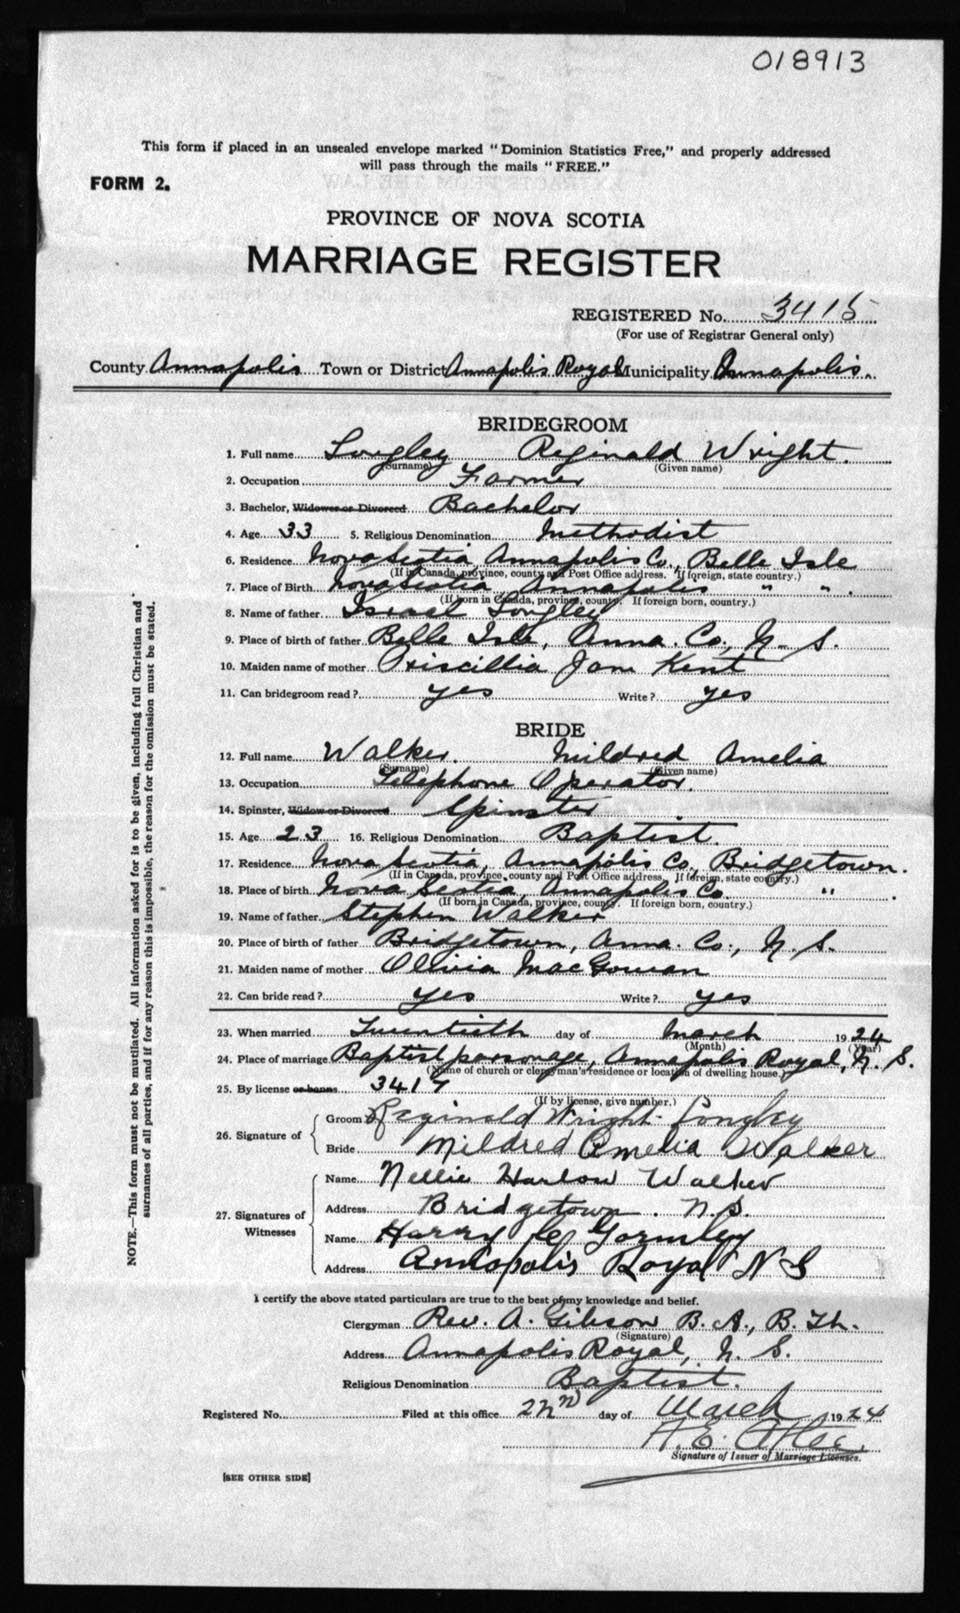 018913
This form if placed in an unsealed envelope marked "Dominion Statistics Free," and properly addressed
will pass through the mails "FREE."
FORM 2.
PROVINCE OF NOVA SCOTIA
MARRIAGE REGISTER
REGISTERED No. 3415
(For use of Registrar General only)
County Annapolis Town or District Annapolis Royal Municipality Annapolis.
BRIDEGROOM
1. Full name Longley Reginald Wright.
(Surname) (Given name)
2. Occupation Farmer
3. Bachelor, Widower or Divorced Bachelor
4. Age 33 5. Religious Denomination Methodist
6. Residence Nova Scotia, Annapolis Co., Belle Isle
(If in Canada, province, county and Post Office address. If foreign, state country.)
7. Place of Birth Nova Scotia, Annapolis " " .
(If born in Canada, province, county. If foreign born, country.)
8. Name of father Israel Longley
9. Place of birth of father Belle Isle, Anna. Co., N. S.
10. Maiden name of mother Priscillia Jane Kent
11. Can bridegroom read? yes Write? yes
BRIDE
12. Full name Walker. Mildred Amelia
(Surname) (Given name)
13. Occupation Telephone Operator.
14. Spinster, Widow or Divorced Spinster
15. Age 23 16. Religious Denomination Baptist.
17. Residence Nova Scotia, Annapolis Co., Bridgetown.
(If in Canada, province, county and Post Office address, If foreign, state country.)
18. Place of birth Nova Scotia, Annapolis Co. " .
(If born in Canada, province, county. If foreign born, country.)
19. Name of father Stephen Walker
20. Place of birth of father Bridgetown, Anna. Co., N. S.
21. Maiden name of mother Ollivia MacGowan
22. Can bride read? yes Write? yes
23. When married Twentieth day of March 1924
(Month) (Year)
24. Place of marriage Baptist parsonage, Annapolis Royal, N. S.
(Name of church or clergyman's residence or location of dwelling house.)
25. By license or banns 3417
(If by license, give number.)
26. Signature of
Groom Reginald Wright Longley
Bride Mildred Amelia Walker
27. Signatures of Witnesses
Name Nellie Harlow Walker
Address Bridgetown. N.S.
Name Harry Gormley
Address Annapolis Royal N S
I certify the above stated particulars are true to the best of my knowledge and belief.
Clergyman Rev. A. Gibson B. A., B. Th.
(Signature)
Address Annapolis Royal, N. S.
Religious Denomination Baptist.
Registered No. Filed at this office 22nd day of March 1924
A. E. Atlee.
Signature of Issuer of Marriage Licenses.
[SEE OTHER SIDE]
NOTE.—This form must not be mutilated. All information asked for is to be given, including full Christian and
surnames of all parties, and if for any reason this is impossible, the reason for the omission must be stated.